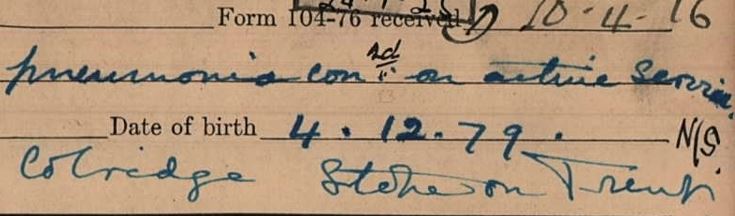 Form 104-76 received 10-4-16
pneumonia con sd on active service.
Date of birth 4.12.79. N/S.
Colridge Stoke on Trent